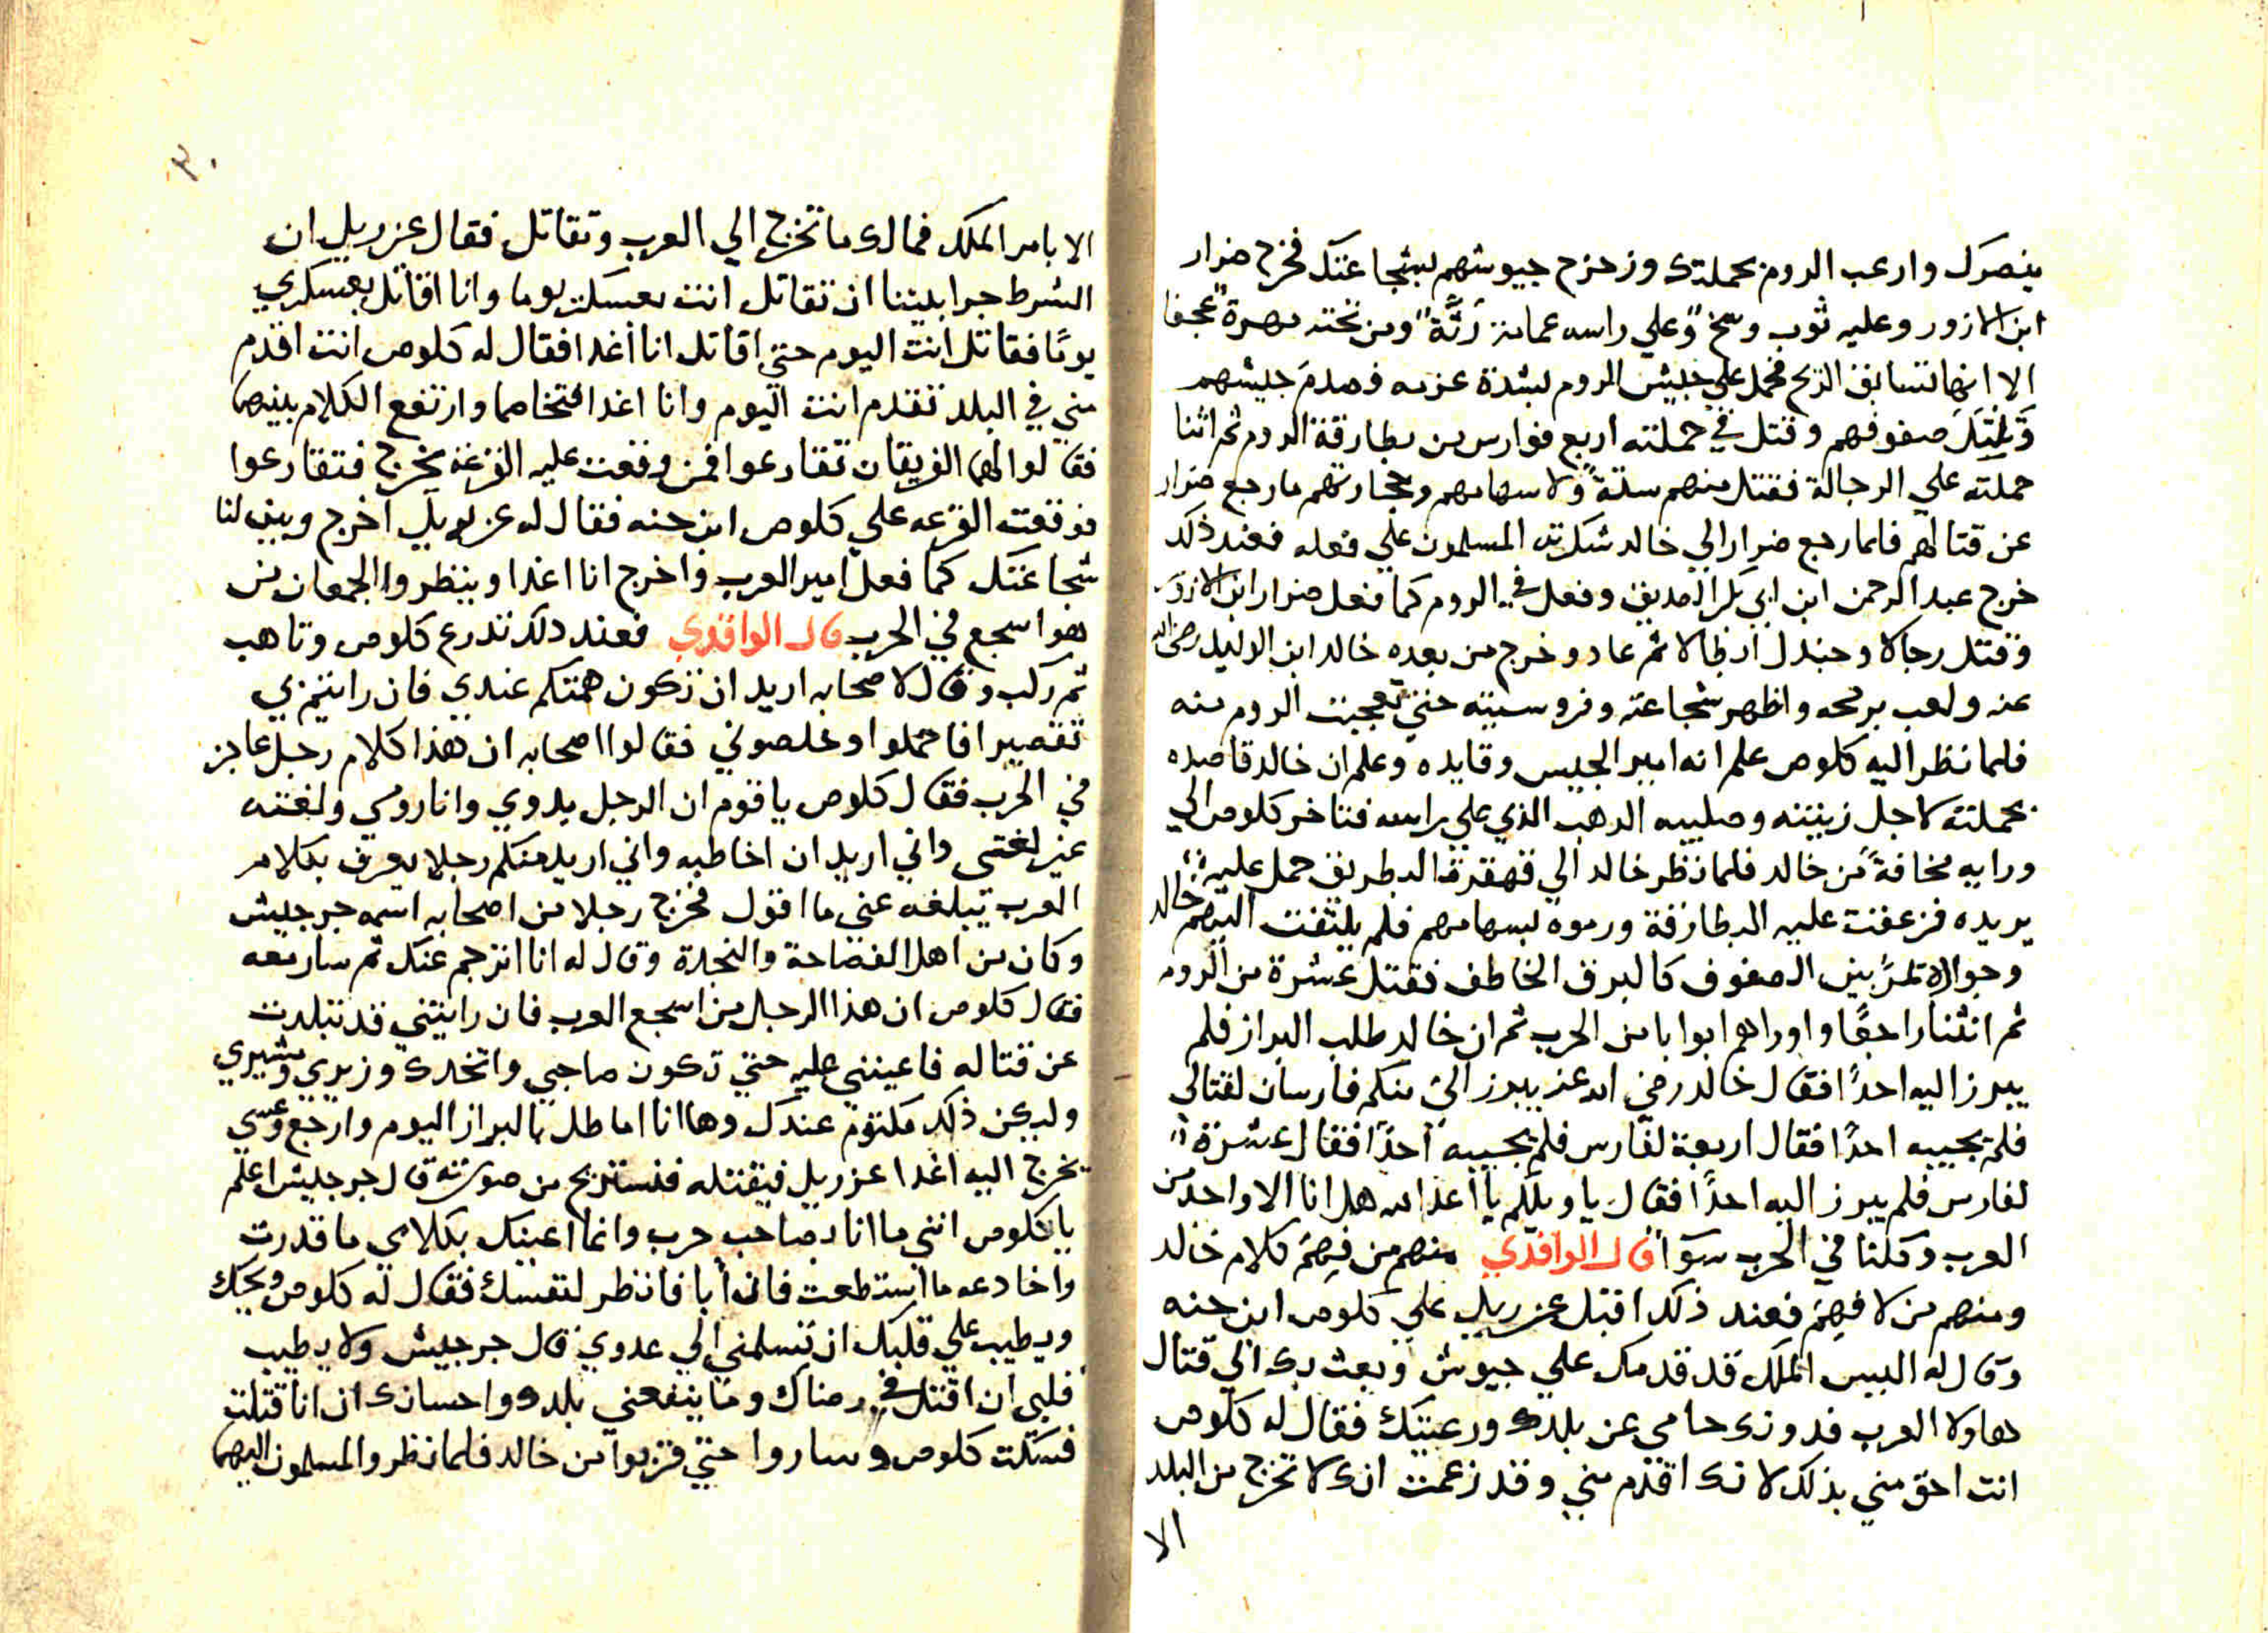 ينصرك وارعب الروم بحملتك وزحزح جيوشهم بشجاعتك فخرج ضرار
ابن الازور وعليه ثوب وسخ وعلي راسه عمامة رثة ومن تحته مهرة عجفا
الا انها تسابق الريح فحمل علي جيش الروم بشدة عزمه فهدم جيشهم
صفوفهم وقتل في حملته اربع فوارس من بطارقة الروم ثم اثنا
حملته علي الرجالة فقتل منهم ستة ولا سهامهم وحجارتهم ما رجع ضرار
عن قتالهم فلما رجع ضرار الي خالد شكرته المسلمون علي فعله فعند ذلك
خرج عبد الرحمن ابن ابي بكر الصديق وفعل في الروم كما فعل ضرار ابن الازور
وقتل رجالا وجندل ابطالا ثم عاد وخرج من بعده خالد ابن الوليد رضي الله
عنه ولعب برمحه واظهر شجاعته وفروسيته حتي تعجبت الروم منه
فلما نظر اليه كلوص علم انه امير الجيس وقايده وعلم ان خالد قاصده
بحملته لاجل زينته وصليبه الدهب الذي علي راسه فتاخر كلوص الي
ورايه مخافة من خالد فلما نظر خالد الي قهقرة البطريق حمل عليه
يريده فزعقت عليه البطارقة ورموه بسهامهم فلم يلتفت اليهم خالد
وجواده تمر بين الصفوف كالبرق الخاطف فقتل عشرة من الروم
ثم انثنا راجعا واوراهم ابوابا من الحرب ثم ان خالد طلب البراز فلم
يبرز اليه احدا فقال خالد رضي الله عنه يبرز الي منكم فارسان لقتالي
فلم يجيبه احدا فقال اربعة لفارس فلم يجيبه احدا فقال عشرة
لفارس فلم يبرز اليه احدا فقال يا ويلكم يا اعدا الله هل انا الا واحد من
العرب وكلنا في الحرب سوا قال الواقدي منهم من فهم كلام خالد
ومنهم من لا فهم فعند ذلك اقبل عزريل علي كلوص ابن حنه
وقال له اليس الملك قد قدمك علي جيوش وبعث بك الي قتال
هاولا العرب فدونك حامي عن بلدك ورعيتك فقال له كلوص
انت احق مني بذلك لانك اقدم مني وقد زعمت انك لا تخرج من البلد
الا
٣٠
الا بامر الملك فمالك ما تخرج الي العرب وتقاتل فقال عزريل ان
الشرط جرا بيننا ان تقاتل انت بعسكرك يوما وانا اقاتل بعسكري
يوما فقاتل انت اليوم حتي اقاتل انا اغدا فقال له كلوص انت اقدم
مني في البلد تقدم انت اليوم وانا اغدا فتخاصما وارتفع الكلام بينهما
فقالوا لهما الفريقان تقارعوا فمن وقعت عليه القرعه يخرج فتقارعوا
فوقعت القرعه علي كلوص ابن حنه فقال له عزريل اخرج وبين لنا
شجاعتك كما فعل امير العرب واخرج انا اغدا وينظروا الجمعان من
هو اسجع في الحرب قال الواقدي فعند دلك تدرع كلوص وتاهب
ثم ركب وقال لاصحابه اريد ان تكون همتكم عندي فان رايتم بي
تقصيرا فاحملوا وخلصوني فقالوا اصحابه ان هذا كلام رجل عاجز
في الحرب فقال كلوص يا قوم ان الرجل بدوي وانا رومي ولغته
غير لغتي واني اريد ان اخاطبه واني اريد منكم رجلا يعرف بكلام
العرب يبلغه عني ما اقول فخرج رجلا من اصحابه اسمه جرجيش
وكان من اهل الفصاحة والنجدة وقال له انا اترجم عنك ثم سار معه
فقال كلوص ان هذا الرجل من اسجع العرب فان رايتني قد تبلدت
عن قتاله فاعينني عليه حتي تكون صاحبي واتخدك وزيري ومشيري
وليكن ذلك مكتوم عندك وها انا اماطله بالبراز اليوم وارجع وعسي
يخرج اليه اغدا عزريل فيقتله فنستريح من صورته قال جرجيش اعلم
يا كلوص انني ما انا بصاحب حرب وانما اعينك بكلامي ما قدرت
واخادعه ما استطعت فان ابا فانظر لنفسك فقال له كلوص ويحك
ويطيب علي قلبك ان تسلمني الي عدوي قال جرجيش ولا يطيب
قلبي ان اقتل في رضاك وما ينفعني بلدك واحسانك ان انا قتلت
فسكت كلوص وساروا حتي قربوا من خالد فلما نظروا المسلمون اليهما